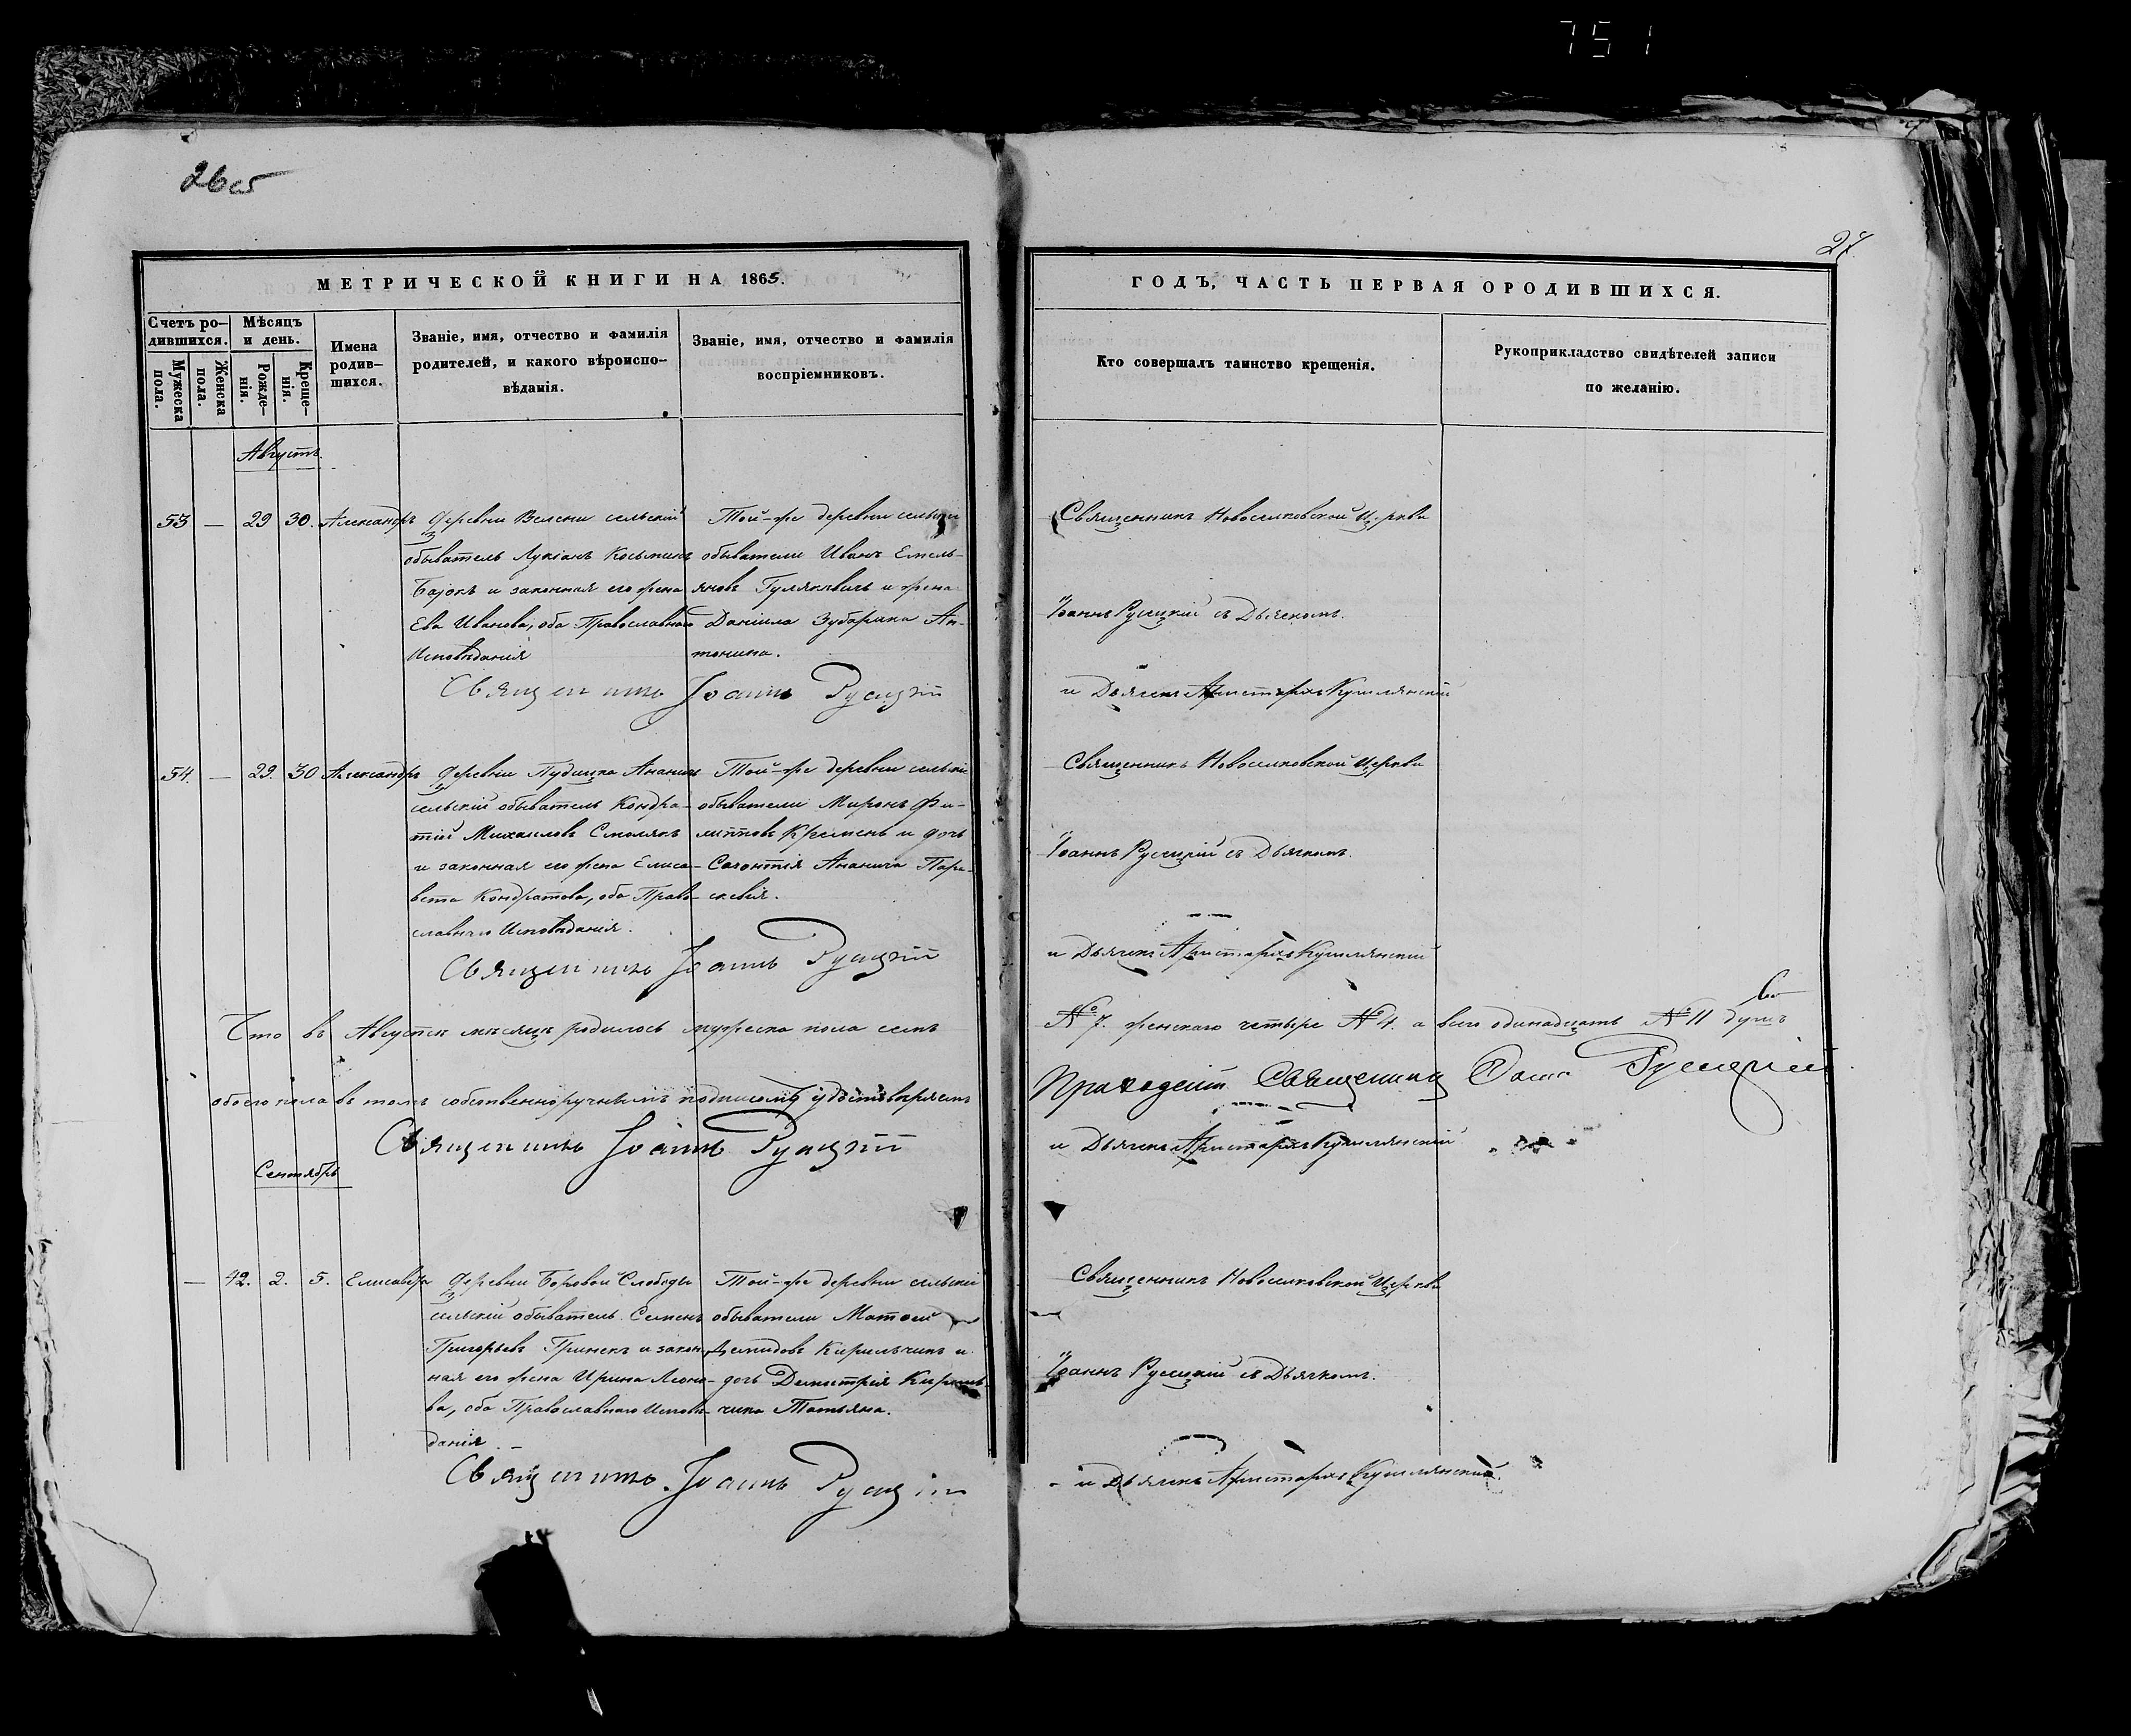 751
26об
27
МЕТРИЧЕСКОЙ КНИГИ НА 1865.
ГОДЪ, ЧАСТЬ ПЕРВАЯ ОРОДИВШИХСЯ.
Счетъ ро-
дившихся.
Мужеска
пола.
Женска
пола.
Мѣсяцъ
и день.
Рожде-
нія.
Креще-
нія.
Имена
родив-
шихся.
Званіе, имя, отчество и фамилія
родителей, и какого вѣроиспо-
вѣданія.
Званіе, имя, отчество и фамилія
воспріемниковъ.
Кто совершалъ таинство крещенія.
Рукоприкладство свидѣтелей записи
по желанію.
Августъ.
53 — 29 30. Александръ
деревни сельскій
обыватель Лукіанъ Косьминъ
и законная его жена
Ева Иванова, оба Православнаго
Исповѣданія
Той-же деревни сельскіе
обыватели Иванъ Емель-
яновъ и жена
Даніила Ан-
тонина.
Священникъ Іоаннъ Русецкій
Священникъ Новоселковской Церкви
Іоаннъ Русецкій съ Дьячкомъ.
и Дьячекъ Аристархъ
54. — 29. 30 Александръ
деревни
сельскій обыватель Кондра-
тій Михаиловъ Смолякъ
и законная его жена Елиса-
вета Кондратова, оба Право-
славнаго Исповѣданія.
Той-же деревни сельскіе
обыватели Миронъ Фи-
липповъ Кремень и дочь
Ананича Пара-
скевія.
Священникъ Іоаннъ Русецкій
Священникъ Новоселковской Церкви
Іоаннъ Русецкій съ Дьячкомъ.
и Дьячекъ Аристархъ
Что въ Августѣ мѣсяцѣ родилось мужеска пола семь
№ 7. женскаго четыре № 4. а всего одинадцать № 11 душъ
обоего пола въ томъ собственноручнымъ подписомъ удостовѣряемъ
Приходскій Священникъ Іоаннъ Русецкій
Священникъ Іоаннъ Русецкій
и Дьячекъ Аристархъ
Сентябрь
— 42. 2. 5. Елисавета
деревни Боровой Слободы
сельскій обыватель Семенъ
Григорьевъ Гринекъ и закон-
ная его жена Ирина Леоно-
ва, оба Православнаго Исповѣ-
данія.
Той-же деревни сельскіе
обыватели Матвей
Демидовъ Кирильчикъ и
дочь Димитрія Кириль-
чика Татьяна.
Священникъ Іоаннъ Русецкій
Священникъ Новоселковской Церкви
Іоаннъ Русецкій съ Дьячкомъ.
и Дьячекъ Аристархъ